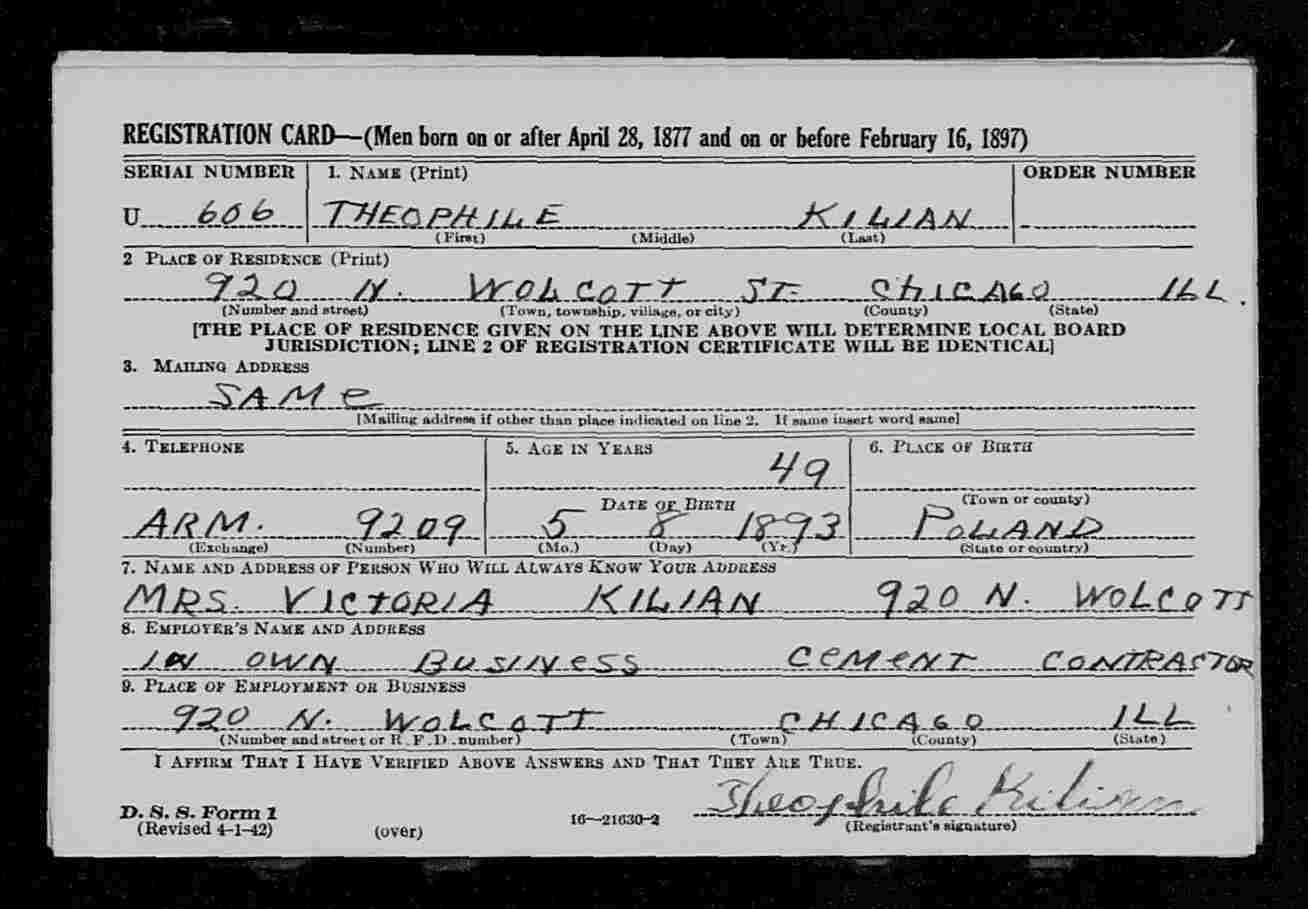 REGISTRATION CARD—(Men born on or after April 28, 1877 and on or before February 16, 1897)
SERIAL NUMBER 1. NAME (Print) ORDER NUMBER
U 606 THEOPHILE KILIAN
(First) (Middle) (Last)
2 PLACE OF RESIDENCE (Print)
920 N. WOLCOTT ST. CHICAGO ILL.
(Number and street) (Town, township, village, or city) (County) (State)
[THE PLACE OF RESIDENCE GIVEN ON THE LINE ABOVE WILL DETERMINE LOCAL BOARD
JURISDICTION; LINE 2 OF REGISTRATION CERTIFICATE WILL BE IDENTICAL]
3. MAILING ADDRESS
SAME
[Mailing address if other than place indicated on line 2. If same insert word same]
4. TELEPHONE 5. AGE IN YEARS 6. PLACE OF BIRTH
49
DATE OF BIRTH (Town or county)
ARM. 9209 5 8 1893 POLAND
(Exchange) (Number) (Mo.) (Day) (Yr.) (State or country)
7. NAME AND ADDRESS OF PERSON WHO WILL ALWAYS KNOW YOUR ADDRESS
MRS. VICTORIA KILIAN 920 N. WOLCOTT
8. EMPLOYER'S NAME AND ADDRESS
IN OWN BUSINESS CEMENT CONTRACTOR
9. PLACE OF EMPLOYMENT OR BUSINESS
920 N. WOLCOTT CHICAGO ILL
(Number and street or R. F. D. number) (Town) (County) (State)
I AFFIRM THAT I HAVE VERIFIED ABOVE ANSWERS AND THAT THEY ARE TRUE.
Theophile Kilian
D. S. S. Form 1
(Revised 4-1-42) (over) 16—21630-2 (Registrant's signature)